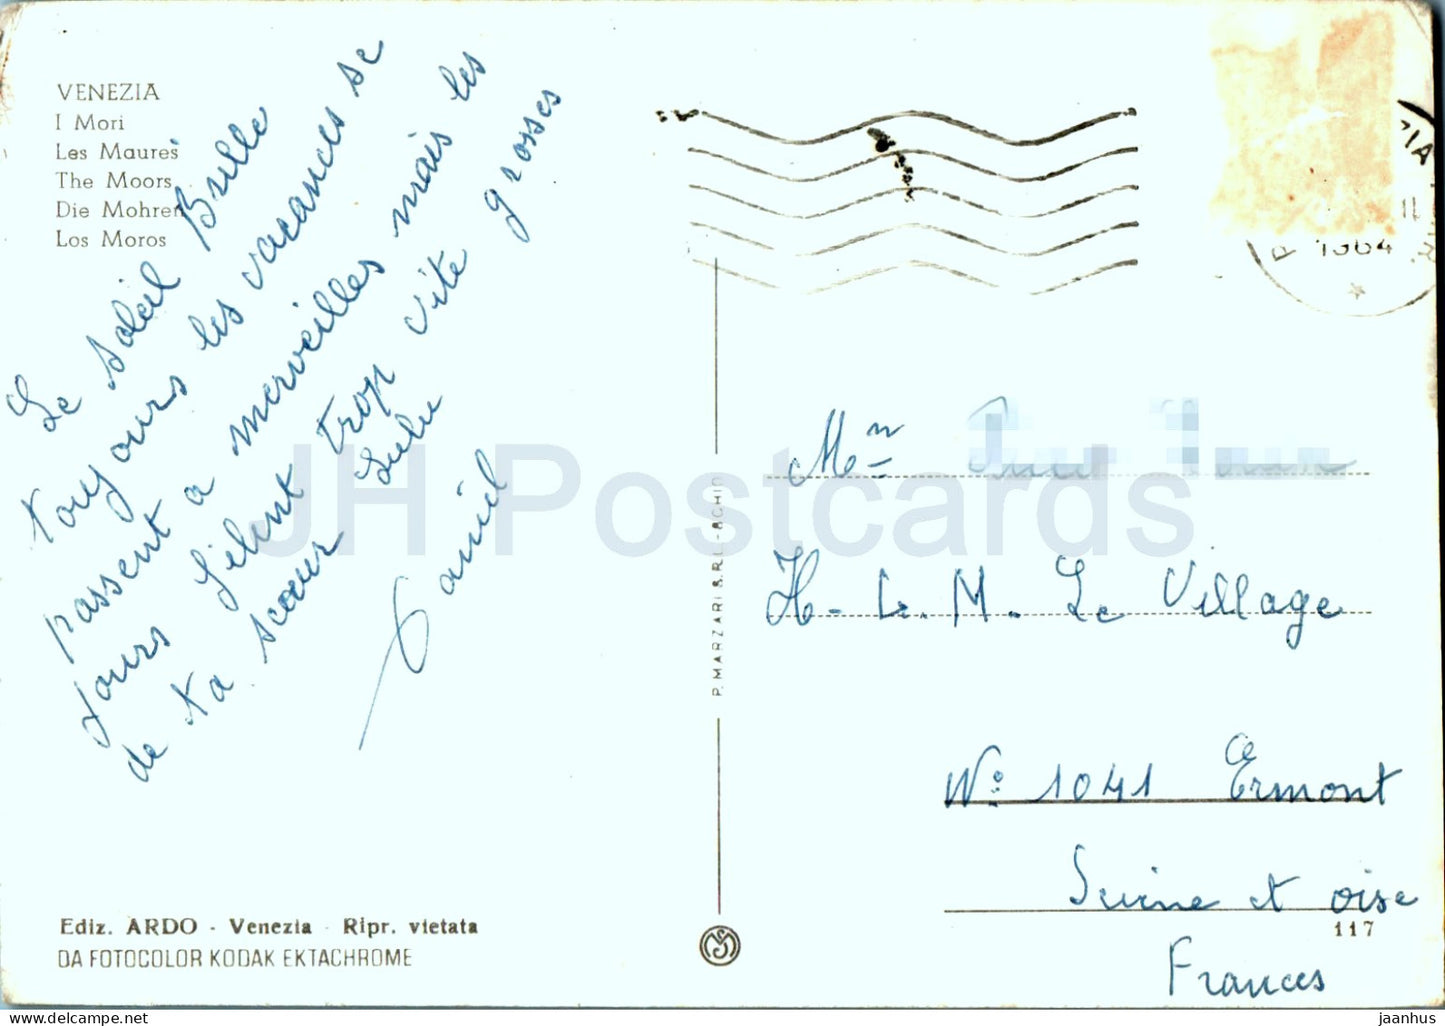 VENEZIA
I Mori
Les Maures
The Moors
Die Mohren
Los Moros
Le soleil Brille
toujours les vacances se
passent a merveilles mais les
jours filent trop vite grosses
de ta soeur Lulu
Daniel
1964
P. MARZARI S.R.L. - SCHIO
Mme
H-L.M. Le Village
No 1041 Ermont
Seine et oise
117
Frances
Ediz. ARDO - Venezia - Ripr. vietata
DA FOTOCOLOR KODAK EKTACHROME
JH Postcards
jaanhus @ delcampe.net